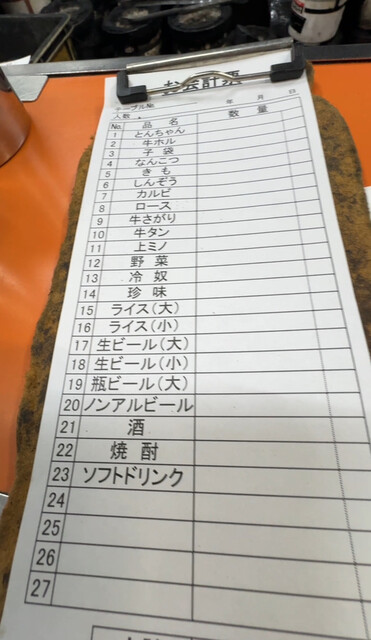 お会計票
テーブル№ 年 月 日
人数
No. 品 名 数 量
1 とんちゃん
2 牛ホル
3 子 袋
4 なんこつ
5 き も
6 しんぞう
7 カルビ
8 ロース
9 牛さがり
10 牛タン
11 上ミノ
12 野 菜
13 冷 奴
14 珍 味
15 ライス(大)
16 ライス(小)
17 生ビール(大)
18 生ビール(小)
19 瓶ビール(大)
20 ノンアルビール
21 酒
22 焼 酎
23 ソフトドリンク
24
25
26
27